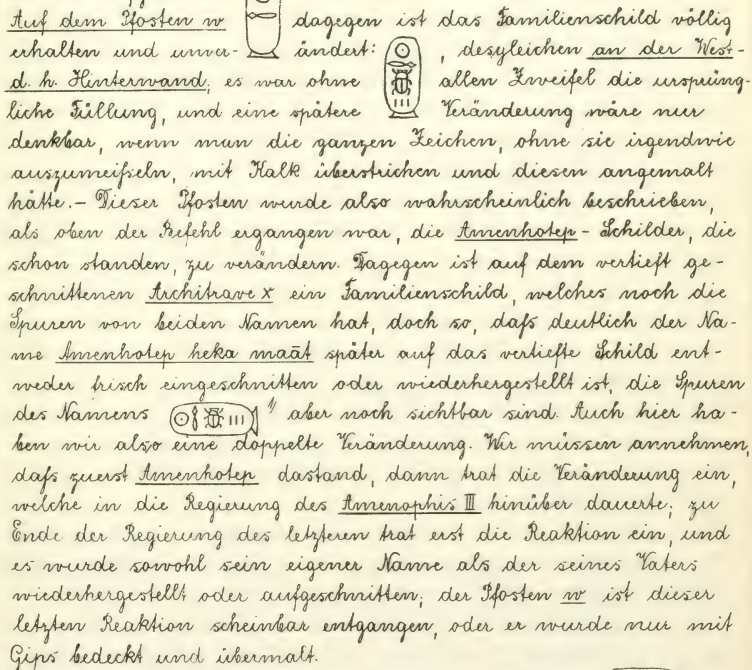 Auf dem Pfosten w dagegen ist das Familienschild völlig
erhalten und unver- ändert: , desgleichen an der West-
d. h. Hinterwand; es war ohne allen Zweifel die ursprüng-
liche Füllung, und eine spätere Veränderung wäre nur
denkbar, wenn man die ganzen Zeichen, ohne sie irgendwie
auszumeißeln, mit Kalk überstrichen und diesen angemalt
hätte.- Dieser Pfosten wurde also wahrscheinlich beschrieben,
als oben der Befehl ergangen war, die Amenhotep-Schilder, die
schon standen, zu verändern. Dagegen ist auf dem vertieft ge-
schnittenen Architrave x ein Familienschild, welches noch die
Spuren von beiden Namen hat, doch so, daß deutlich der Na-
me Amenhotep heka maāt später auf das vertiefte Schild ent-
weder frisch eingeschnitten oder wiederhergestellt ist, die Spuren
des Namens 1) aber noch sichtbar sind. Auch hier ha-
ben wir also eine doppelte Veränderung. Wir müssen annehmen,
daß zuerst Amenhotep dastand, dann trat die Veränderung ein,
welche in die Regierung des Amenophis III hinüber dauerte; zu
Ende der Regierung des letzteren trat erst die Reaktion ein, und
es wurde sowohl sein eigener Name als der seines Vaters
wiederhergestellt oder aufgeschnitten; der Pfosten w ist dieser
letzten Reaktion scheinbar entgangen, oder er wurde nur mit
Gips bedeckt und übermalt.